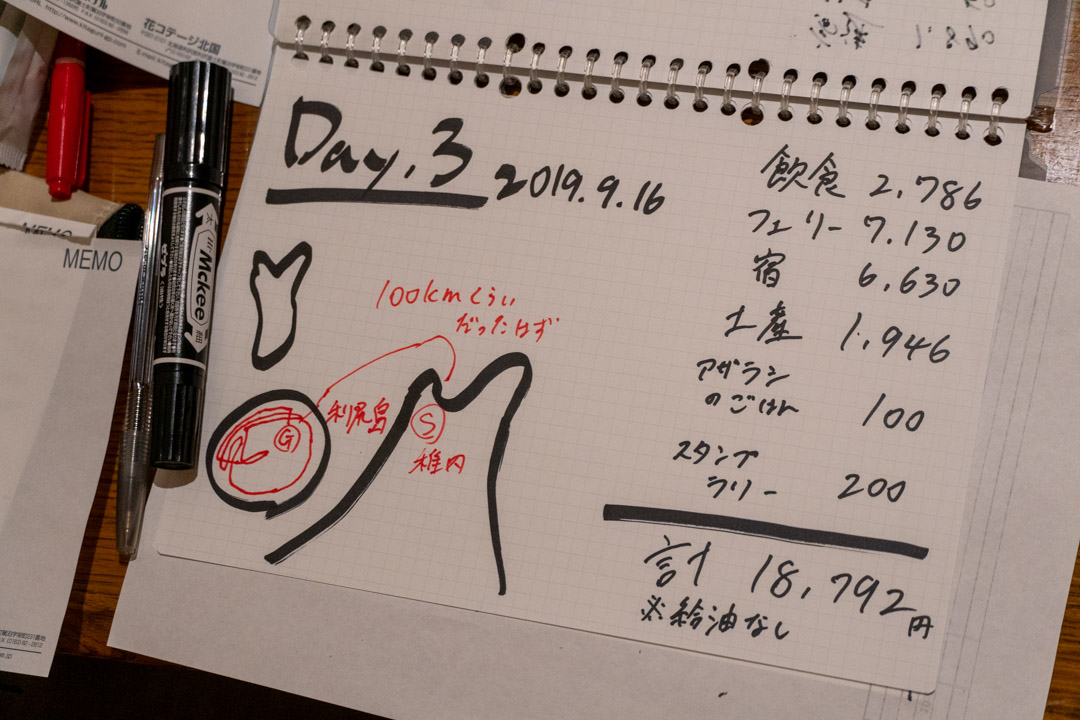 花コテージ北国
MEMO
Mckee
細
Day.3 2019.9.16
100kmくらい
だったはず
利尻島
G
S
稚内
飲食 2,786
フェリー 7,130
宿 6,630
土産 1,946
アザラシ
のごはん 100
スタンプ
ラリー 200
計 18,792円
※給油なし